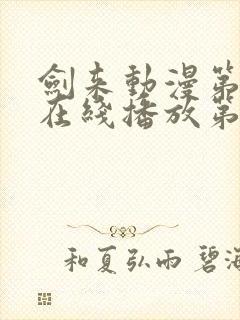 劍来動漫第
在綫播放第
和夏弘雨 碧海